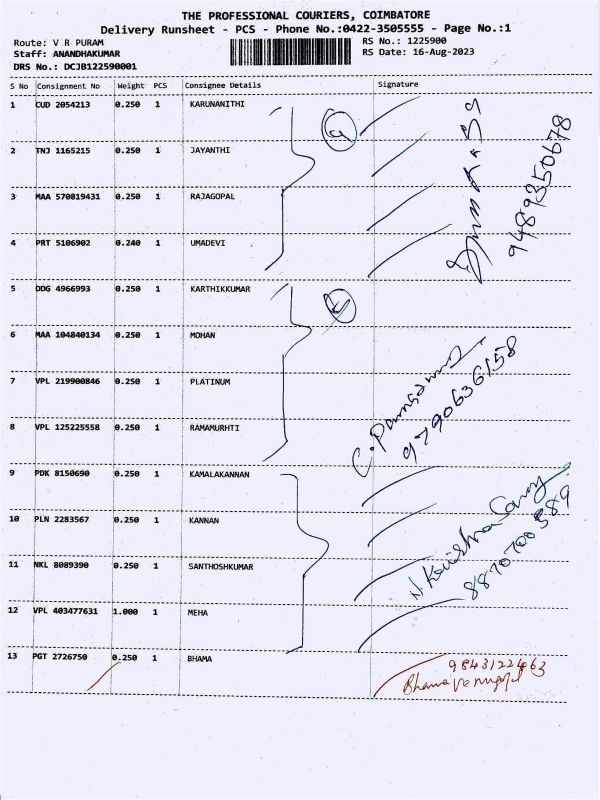 THE PROFESSIONAL COURIERS, COIMBATORE
Delivery Runsheet - PCS - Phone No.:0422-3505555 - Page No.:1
Route: V R PURAM RS No.: 1225900
Staff: ANANDHAKUMAR RS Date: 16-Aug-2023
DRS No.: DCJB122590001
S No Consignment No Weight PCS Consignee Details Signature
1 CUD 2054213 0.250 1 KARUNANITHI
2 TNJ 1165215 0.250 1 JAYANTHI
3 MAA 570819431 0.250 1 RAJAGOPAL
4 PRT 5106902 0.240 1 UMADEVI
9489350678
5 DDG 4966993 0.250 1 KARTHIKKUMAR
6 MAA 104840134 0.250 1 MOHAN
7 VPL 219900846 0.250 1 PLATINUM
8 VPL 125225558 0.250 1 RAMAMURHTI
9790636158
9 PDK 8150690 0.250 1 KAMALAKANNAN
10 PLN 2283567 0.250 1 KANNAN
11 NKL 8089390 0.250 1 SANTHOSHKUMAR
12 VPL 403477631 1.000 1 MEHA
8870700589
13 PGT 2726750 0.250 1 BHAMA
9843122463
Bhama Venugopal